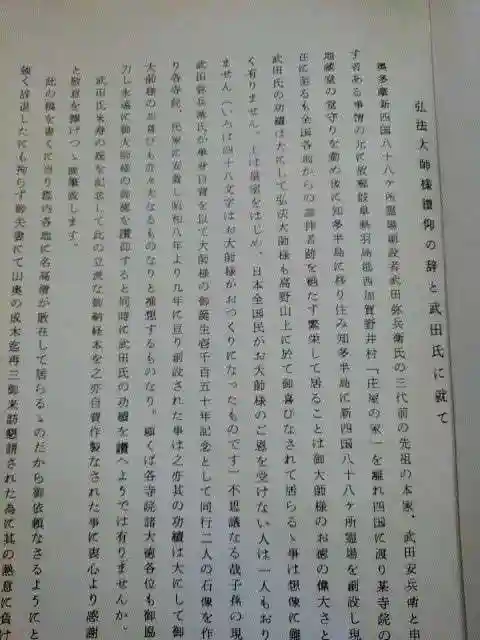 弘法大師様讃仰の辞と武田氏に就て
奥多摩新四国八十八ケ所霊場創設者武田弥兵衛氏の三代前の先祖の本家、武田安兵衛と申
す者ある事情の元に故郷岐阜県羽島郡西加賀野井村「庄屋の家」を離れ四国に渡り某寺院の
地蔵堂の堂守りを勤め後に知多半島に移り住み知多半島に新四国八十八ケ所霊場を創設し現
在に至るも全国各地からの参拝者跡を絶たず繁栄して居ることは御大師様のお徳の偉大さと
武田氏の功績は大にして弘法大師様も高野山上に於て御喜びなされて居らるゝ事は想像に難
く有りません。上は皇室をはじめ、日本全国民がお大師様のご恩を受けない人は一人もおり
ません（いろは四十八文字はお大師様がおつくりになったものです）不思議なる哉子孫の現
武田弥兵衛氏が単身自費を以て大師様の御誕生壱千百五十年記念として同行二人の石像を作
り各寺院、民家に安置し昭和八年より九年に亘り創設された事は之亦其の功績は大にして御
大師様のお喜びも亦大なるものなりと推想するものなり。願くば各寺院諸大徳各位も御協
力し永遠に御大師様の御徳を讃仰すると同時に武田氏の功績を讃へようでは有りませんか。
武田氏米寿の祝を記念して此の立派な御納経本を之亦自費作製なされた事に衷心より感謝
と敬意を捧げつゝ 筆致します。
此の稿を書くに当り郡内各地に名高僧が散在して居らるゝのだから御依頼なさるようにと
強く辞退したにも拘らず御夫妻にて山奥の成木迄再三御来訪懇請された為に其の熱意に負け